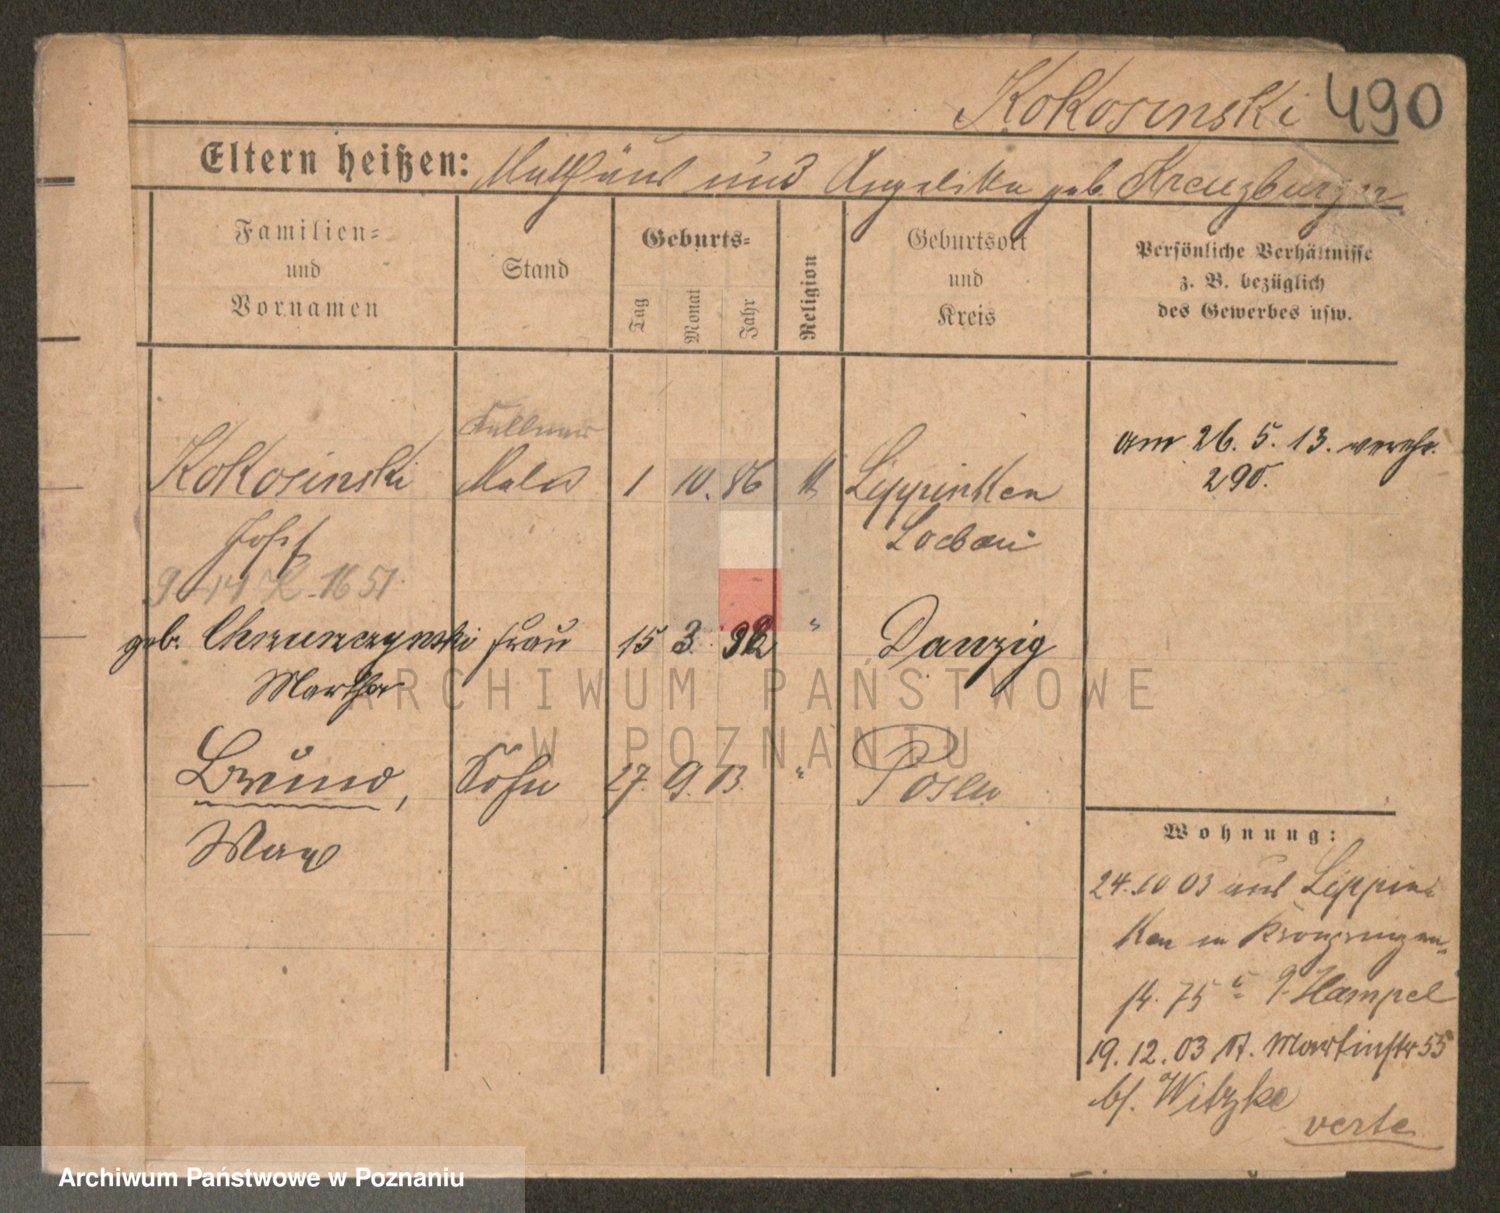 Kokosinski 490
Eltern heißen: Matthäus und Angelika geb. Kreuzburger
Familien-
und
Vornamen
Stand
Geburts-
Tag
Monat
Jahr
Religion
Geburtsort
und
Kreis
Persönliche Verhältnisse
z. B. bezüglich
des Gewerbes usw.
am 26. 5. 13. vereh.
290.
Kellner
Kokosinski Maler 1 10. 86 k Lippinken
Josef Loebau
geb. Frau 15 3. Danzig
Martha
Bruno, Sohn 27. 9. 13. " Posen
Max
Wohnung:
24. 10 03 aus Lippin
ken in
14. 75 Hampel
19. 12. 03 St. Martinstr 55
bf. Witzke
verte
ARCHIWUM PAŃSTWOWE
W POZNANIU
Archiwum Państwowe w Poznaniu